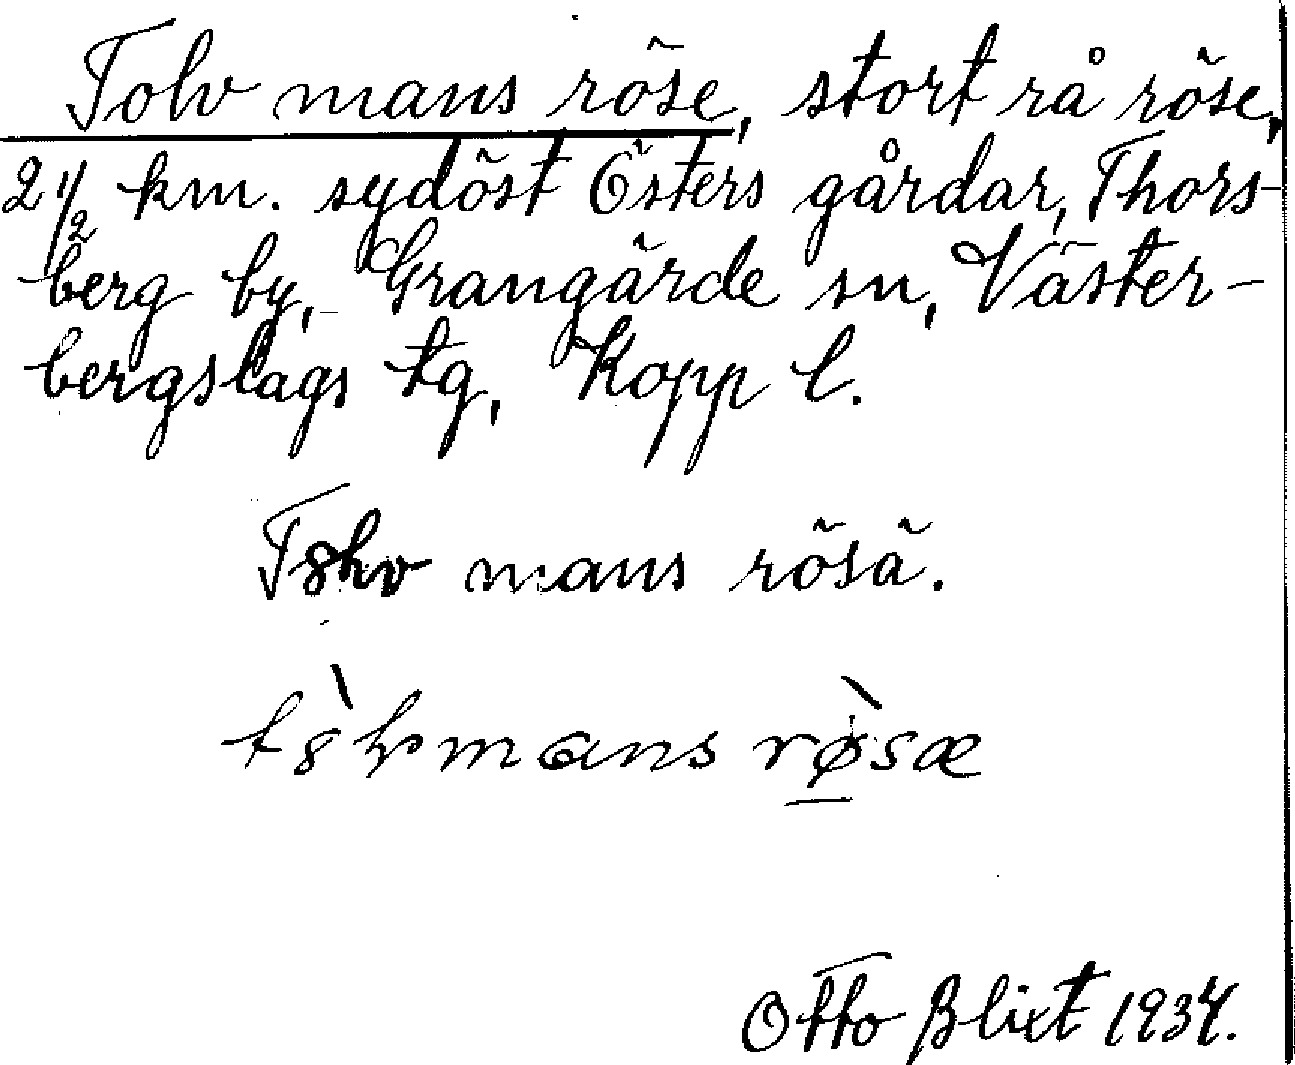 Tolv mans röse, stort rå röse,
2 1/2 km. sydöst Östers gårdar, Thors-
berg by, Grangärde sn, Väster-
bergslags tg, Kopp l.
T8lv mans rösä.
t8̀lvmans rø̀sæ
Otto Blixt 1934.